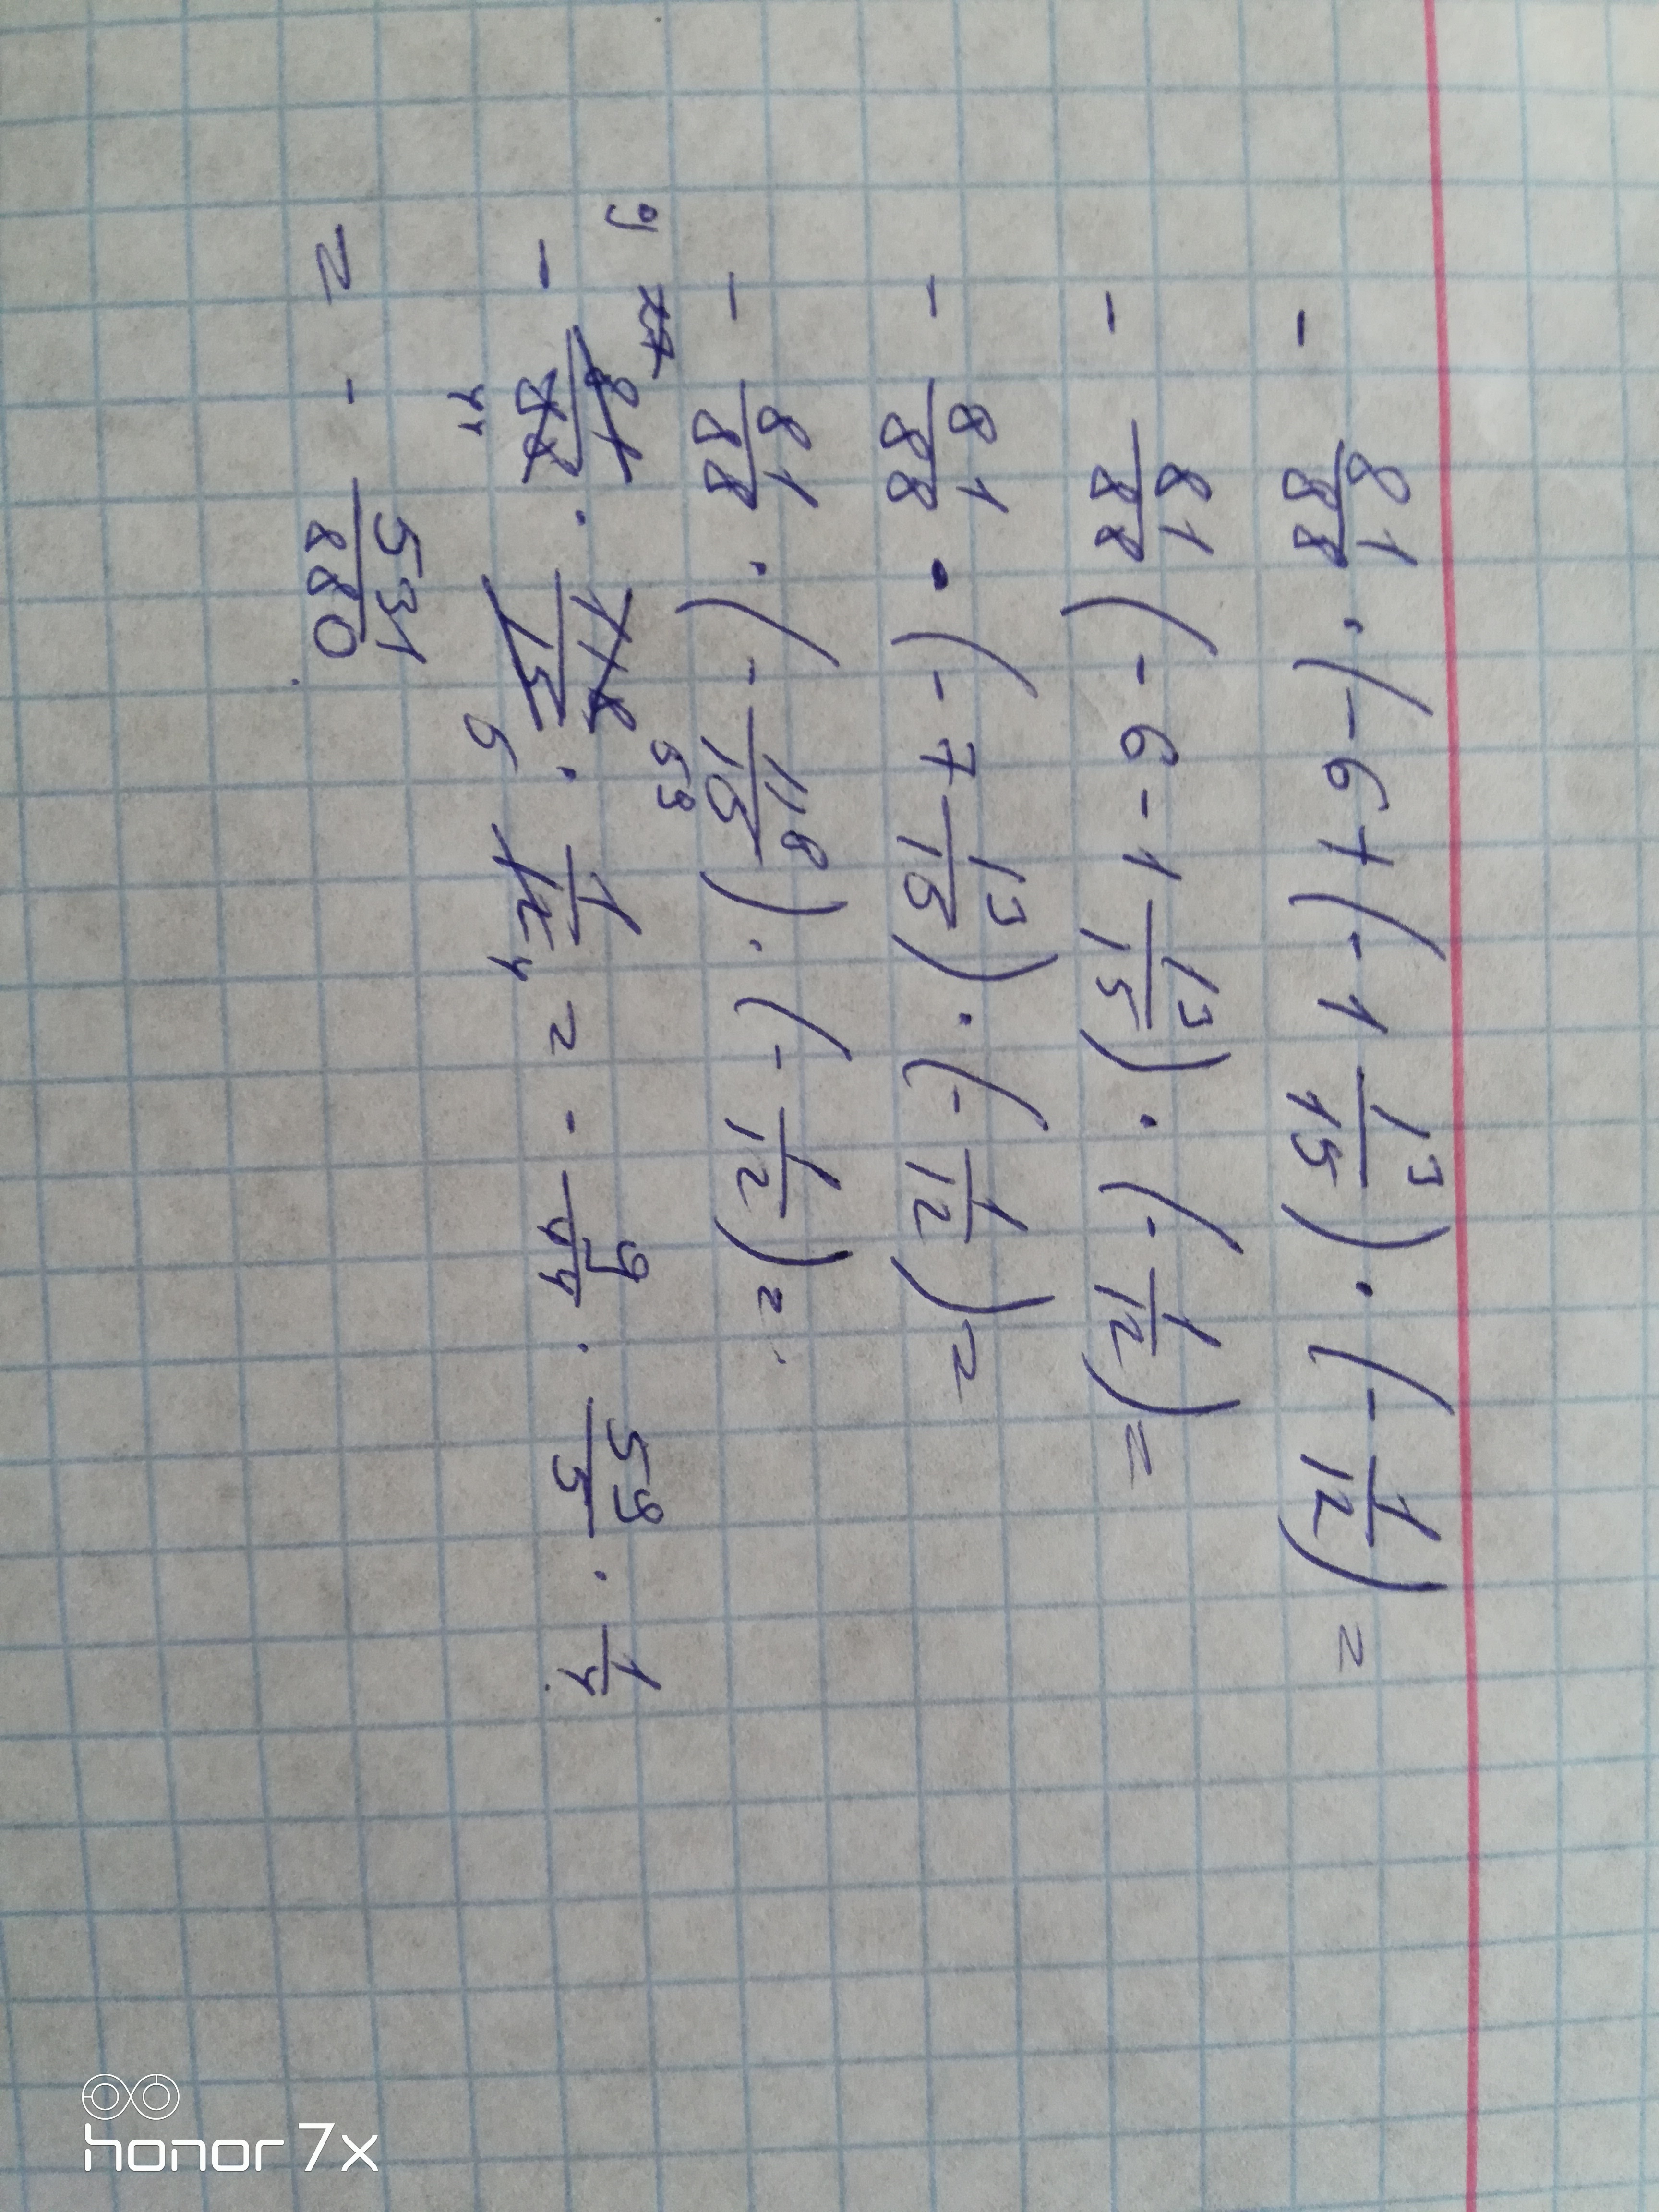 - 81/88 · (-6+(-1 13/15) · (- 1/12) =
- 81/88 (-6-1 13/15) · (- 1/12) =
- 81/88 · (-7 13/15) · (- 1/12) =
- 81/88 · (- 118/15) · (- 1/12) =
9 27 59
- 81/88 · 118/15 · 1/12 = - 9/44 · 59/5 · 1/4
44 5 4
= - 531/880
honor 7x